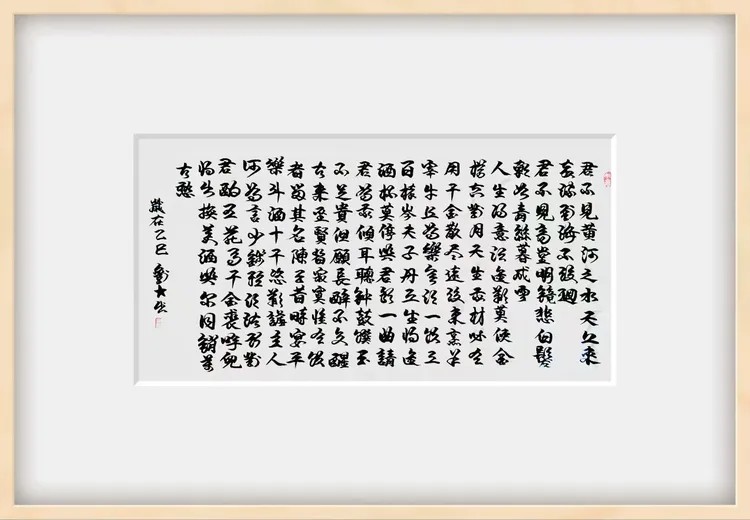 君不見黄河之水天上来
奔流到海不復廻
君不見高堂明鏡悲白髮
朝如青絲暮成雪
人生得意須盡歡莫使金
樽空對月天生我材必有
用千金散尽還復来烹羊
宰牛且為樂會須一飲三
百杯岑夫子丹丘生將進
酒杯莫停與君歌一曲請
君為我傾耳聽鐘鼓饌玉
不足貴但願長醉不復醒
古来聖賢皆寂寞惟有飲
者留其名陳王昔時宴平
樂斗酒十千恣歡謔主人
何為言少錢徑須沽取對
君酌五花馬千金裘呼兒
將出換美酒與爾同銷萬
古愁
歲在乙巳